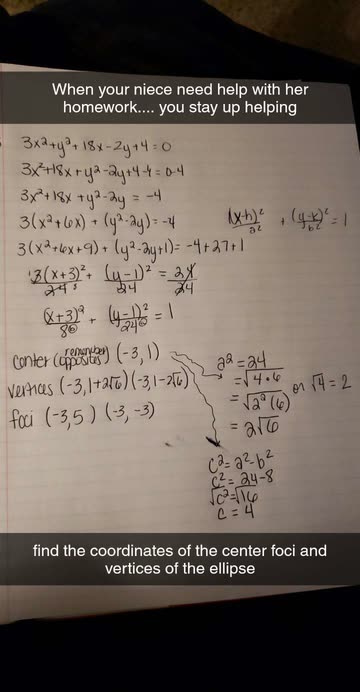 When your niece need help with her
homework.... you stay up helping
3x²+y²+18x-2y+4=0
3x²+18x+y²-2y+4-4=0-4
3x²+18x+y²-2y=-4
3(x²+6x)+(y²-2y)=-4
(x-h)²/a² + (y-k)²/b² = 1
3(x²+6x+9)+(y²-2y+1)=-4+27+1
3(x+3)²/24 + (y-1)²/24 = 24/24
(x+3)²/8 + (y-1)²/24 = 1
center (remember opposites) (-3,1)
vertices (-3,1+2√6) (-3,1-2√6)
foci (-3,5) (-3,-3)
a²=24
=√4·6 or √4=2
=√2²(6)
=2√6
c²=a²-b²
c²=24-8
√c²=√16
c=4
find the coordinates of the center foci and
vertices of the ellipse